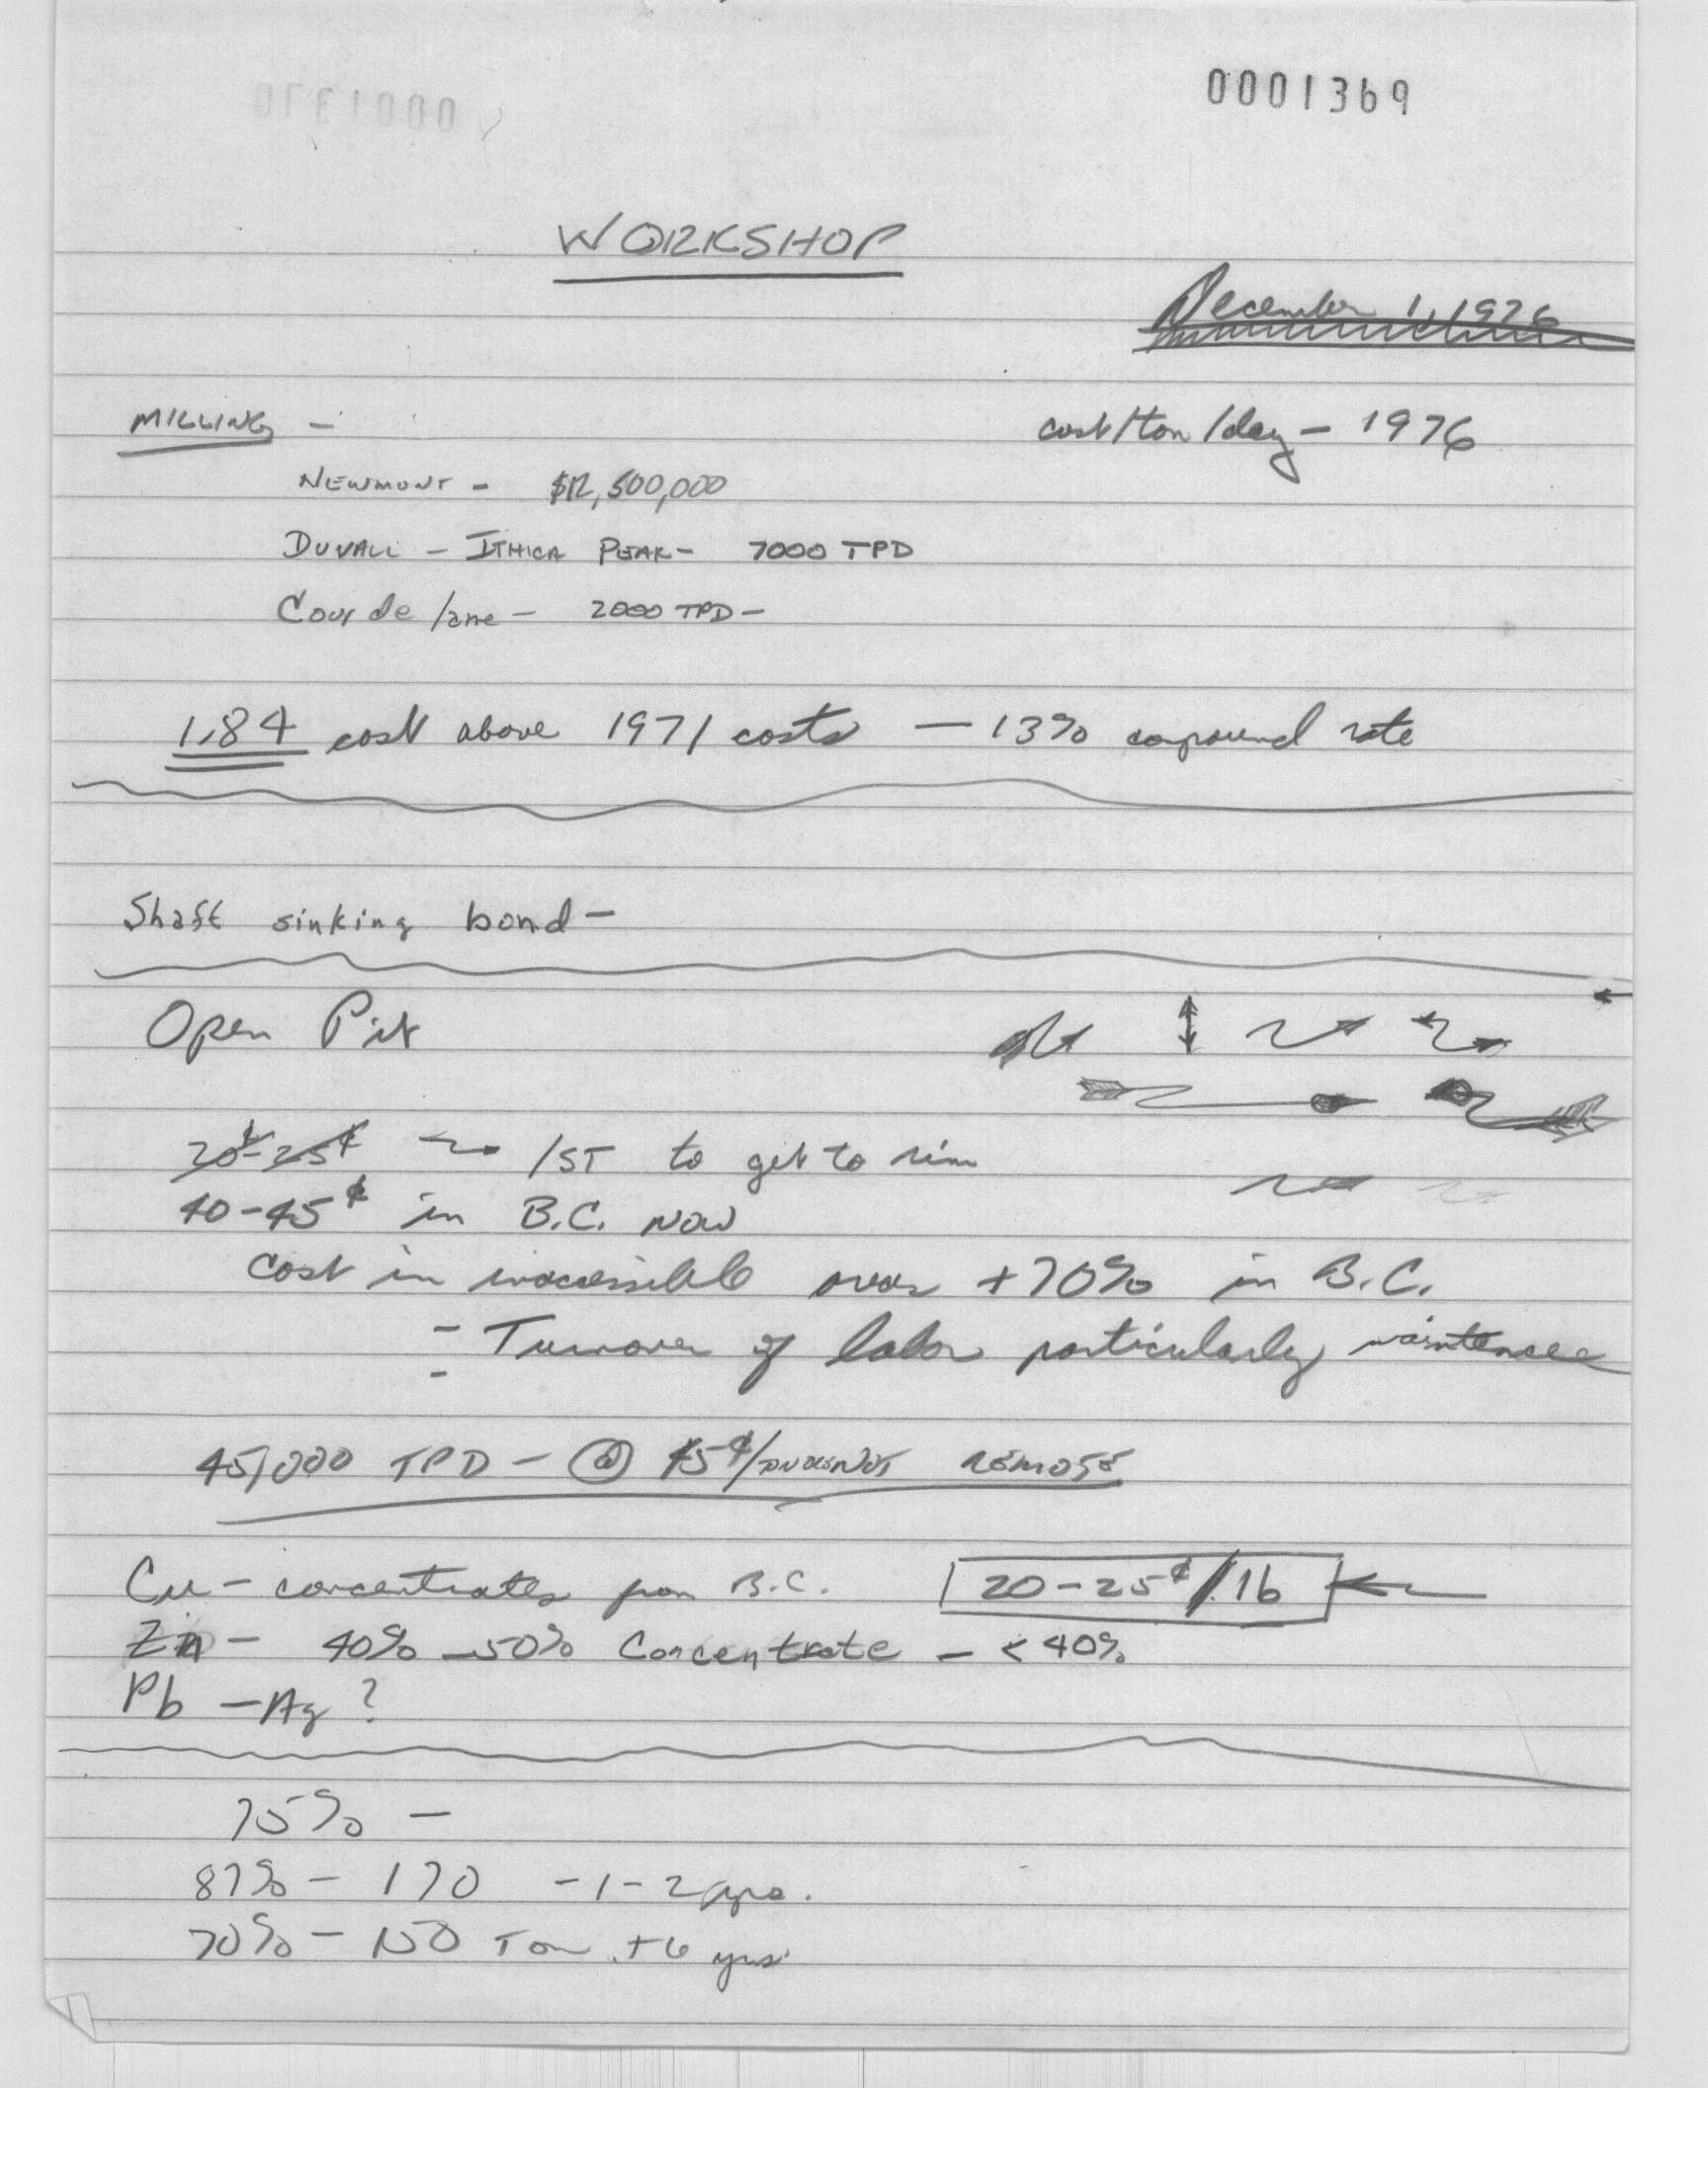 0001369
WORKSHOP
December 1, 1976
MILLING -
cost/ton/day - 1976
NEWMONT - $12,500,000
DUVALL - ITHICA PEAK - 7000 TPD
Cour de lane - 2000 TPD -
1.84 cost above 1971 costs - 13% compound rate
Shaft sinking bond -
Open Pit
20¢-25¢ /ST to get to rim
40-45¢ in B.C. NOW
Cost in inaccessible over +70% in B.C.
- Turnover of labor particularly maintenace
45,000 TPD - @ 45¢/ REMOTE
Cu - concentrates from B.C. 20-25¢/lb
Zn - 40% - 50% Concentrate - < 40%
Pb - Ag ?
75% -
87% - 170 - 1 - 2 yrs.
70% - 150 Ton + 6 yrs